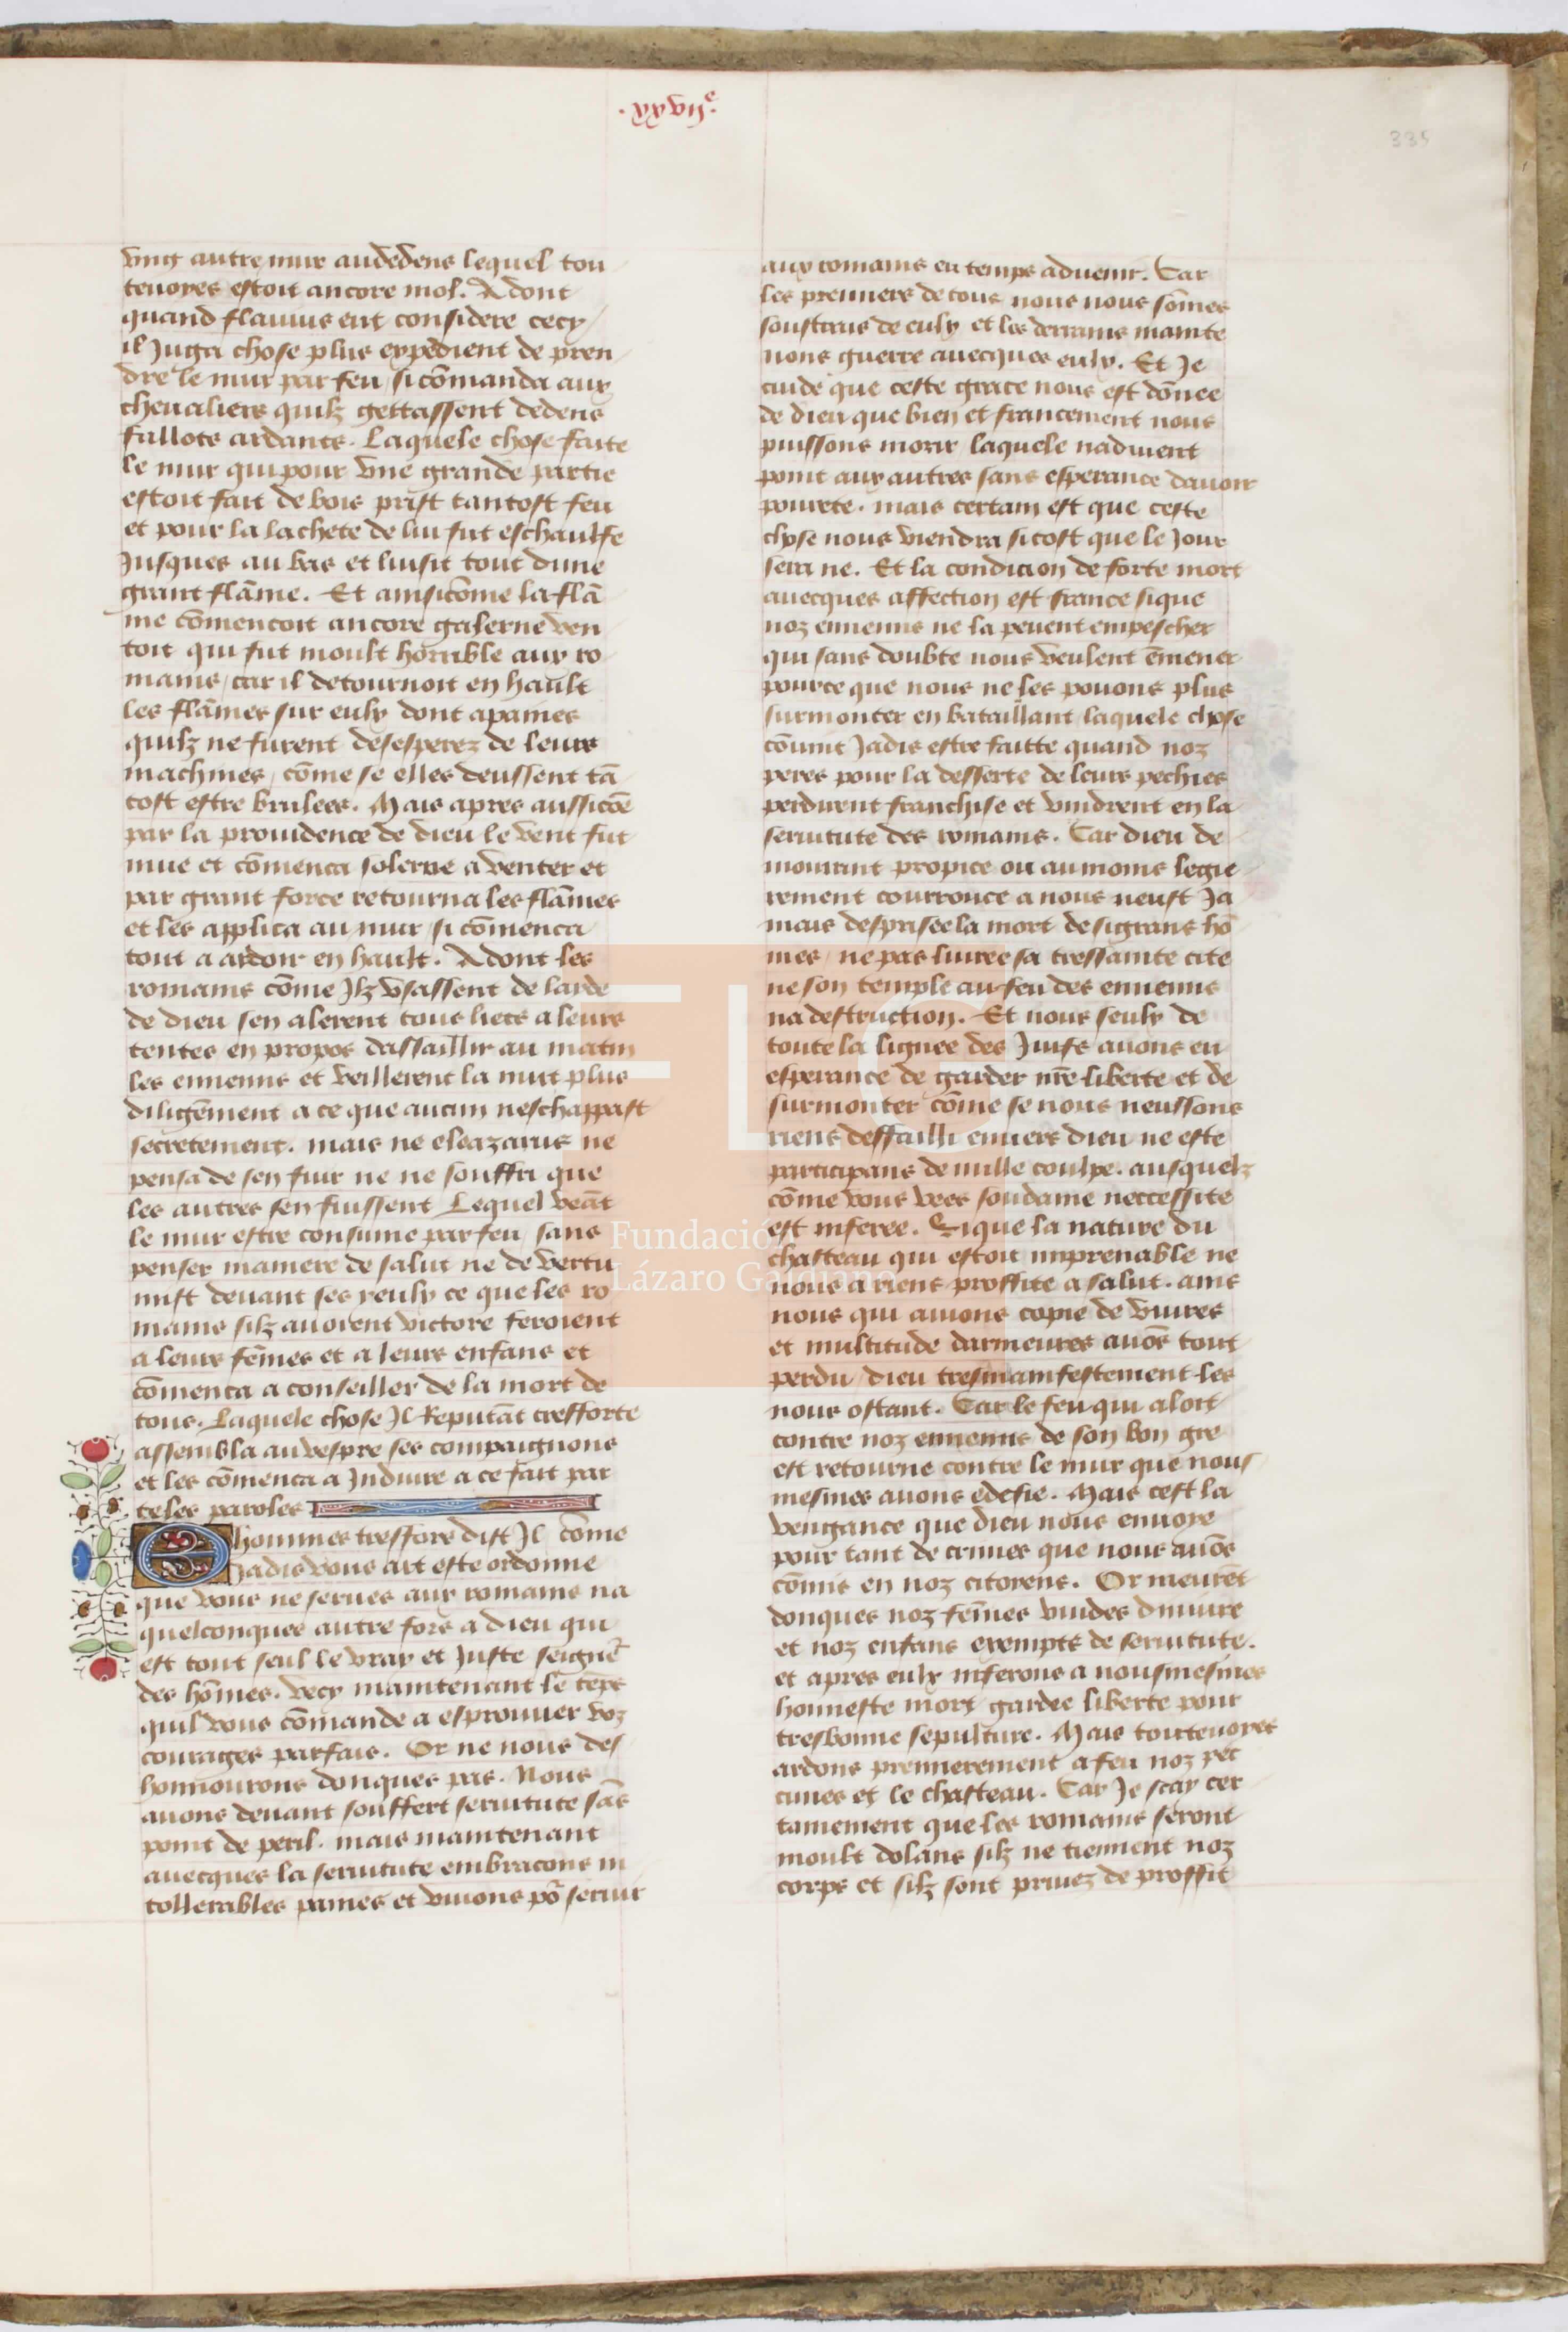 .xxvij^e.
335
vng autre mur audedens lequel tou
teuoyes estoit ancore mol. Adont
quand flauius eut considere cecy/
il Juga chose plus expedient de pren
dre le mur par feu/ si cōmanda aux
cheualiers quilz gettassent dedens
fallots ardants. Laquele chose faite
le mur qui pour vne grande partie
estoit fait de bois prist tantost feu
et pour la lachete de lui fut eschaulfe
Jusques au bas et luisit tout dune
grant flāme. Et ainsi cōme la flā
me cōmencoit ancore galerne ven
toit qui fut moult horrible aux ro
mains/ car il detournoit en hault
les flāmes sur eulx dont apaines
quilz ne furent desesperez de leurs
machines/ cōme se elles deussent tā
tost estre brulees. Mais apres aussi cōe
par la prouidence de dieu le vent fut
mue et cōmenca solerne a venter et
par grant force retourna les flāmes
et les applica au mur/ si cōmenca
tout a ardoir en hault. Adont les
romains cōme Jlz vsassent de larde
de dieu sen alerent tous liets a leurs
tentes en propos dassaillir au matin
les ennemis et veillerent la nuit plus
diligēment a ce que aucun neschappast
secretement. mais ne eleazarus ne
pensa de sen fuir ne ne souffri que
les autres sen fuissent Lequel veāt
le mur estre consume par feu/ sans
penser maniere de salut ne de vertu
mist deuant ses yeulx ce que les ro
mains silz auoient victore feroient
a leurs fēmes et a leurs enfans et
cōmenca a conseiller de la mort de
tous. Laquele chose Jl Reputāt tresforte
assembla au vespre ses compaignons
et les cōmenca a Jnduire a ce fait par
teles paroles
O hommes tresfors dist Jl cōme
Jadis vous ait este ordonne
que vous ne serues aux romains na
quelconques autre fors a dieu qui
est tout seul le vray et Juste seignēr
des hōmes. vecy maintenant le tēps
quil vous cōmande a esprouuer voz
courages parfais. Or ne nous des
honnourons donques pas. Nous
auons deuant souffert seruitute sās
point de peril. mais maintenant
auecques la seruitute embracons in
tollerables paines et viuons pō seruir
aux romains en temps aduenir. Car
les premiers de tous nous nous sōmes
soustrais de eulx et les derrains mainte
nons guerre auecques eulx. Et Je
cuide que ceste grace nous est dōnee
de dieu que bien et francement nous
puissons morir/ laquele naduient
point aux autres sans esperance dauoir
pourete. mais certain est que ceste
chose nous viendra si tost que le Jour
sera ne. Et la condicion de forte mort
auecques affection est france sique
noz ennemis ne la peuent empescher
qui sans doubte nous veulent ēmener
pource que nous ne les pouons plus
surmonter en bataillant/ laquele chose
cōuint Jadis estre faitte quand noz
peres pour la desserte de leurs pechies
perdirent franchise et vindrent en la
seruitute des romains. Car dieu de
mourant propice ou aumoins legie
rement courrouce a nous neust Ja
mais desprisee la mort de si grans hō
mes/ ne pas liuree sa tressainte cite
ne son temple au feu des ennemis
na destruction. Et nous seulx de
toute la lignee des Juifs auons eu
esperance de garder nr̄e liberte et de
surmonter cōme se nous neussons
riens deffailli enuers dieu ne este
participans de nulle coulpe. ausquelz
cōme vous vees soudaine neccessite
est inferee. Sique la nature du
chasteau qui estoit imprenable ne
nous a riens proffite a salut. ains
nous qui auions copie de viures
et multitude darmeures auōs tout
perdu/ dieu tresmanifestement les
nous ostant. Car le feu qui aloit
contre noz ennemis de son bon gre
est retourne contre le mur que nous
mesmes auons edefie. Mais cest la
vengance que dieu nous enuoye
pour tant de crimes que nous auōs
cōmis en noz citoyens. Or meurēt
donques noz fēmes vuides dinjure
et noz enfans exempts de seruitute.
et apres eulx inferons a nousmesmes
honneste mort/ gardee liberte pour
tresbonne sepulture. Mais touteuoyes
ardons premierement a feu noz pec
cunes et le chasteau. Car Je scay cer
tainement que les romains seront
moult dolans silz ne tiennent noz
corps et silz sont priuez de proffit
FLG
Fundación
Lázaro Galdiano